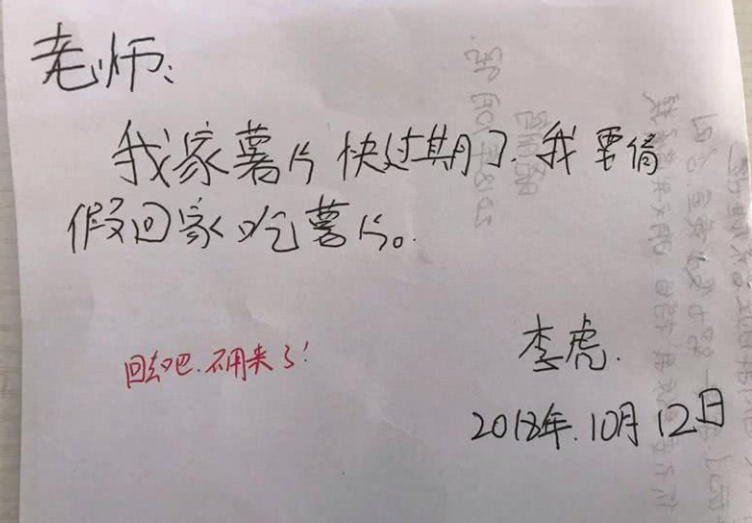 老师:
我家薯片快过期了.我要请
假回家吃薯片。
回去吧.不用来了!
李虎.
2018年.10月12日